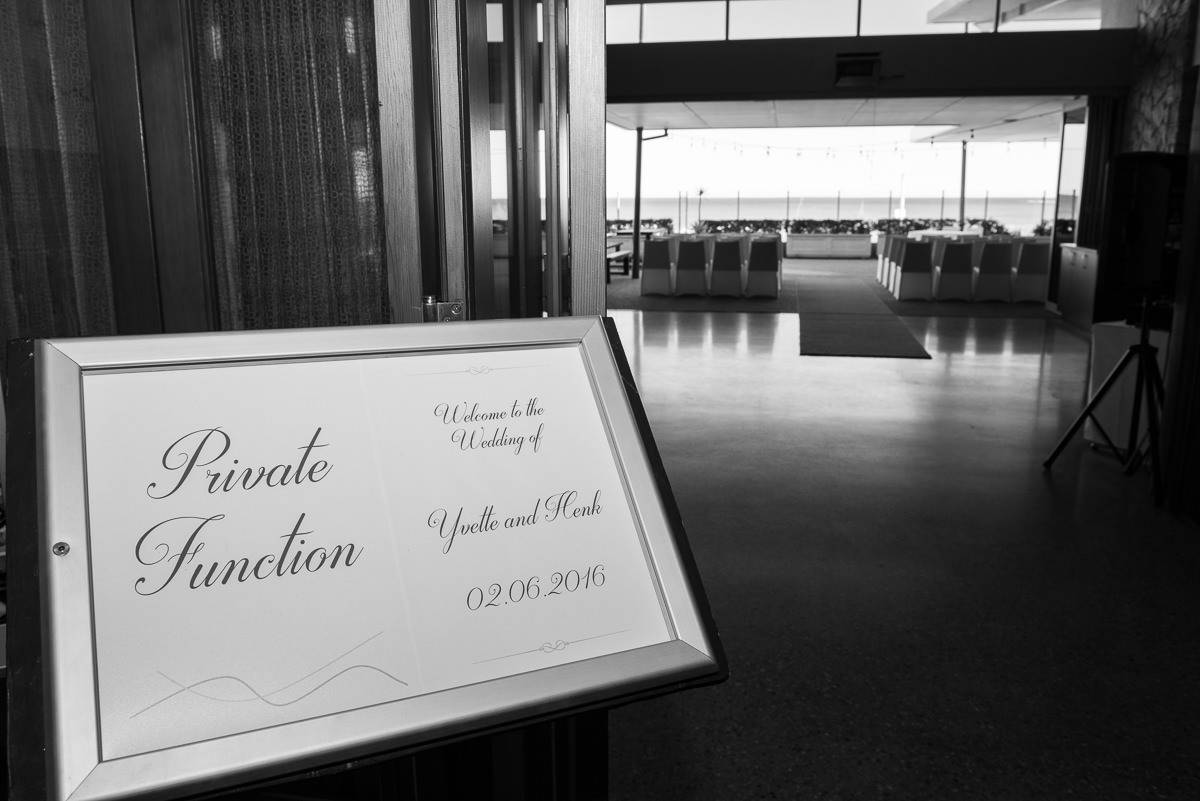 Private
Function
Welcome to the
Wedding of
Yvette and Henk
02.06.2016